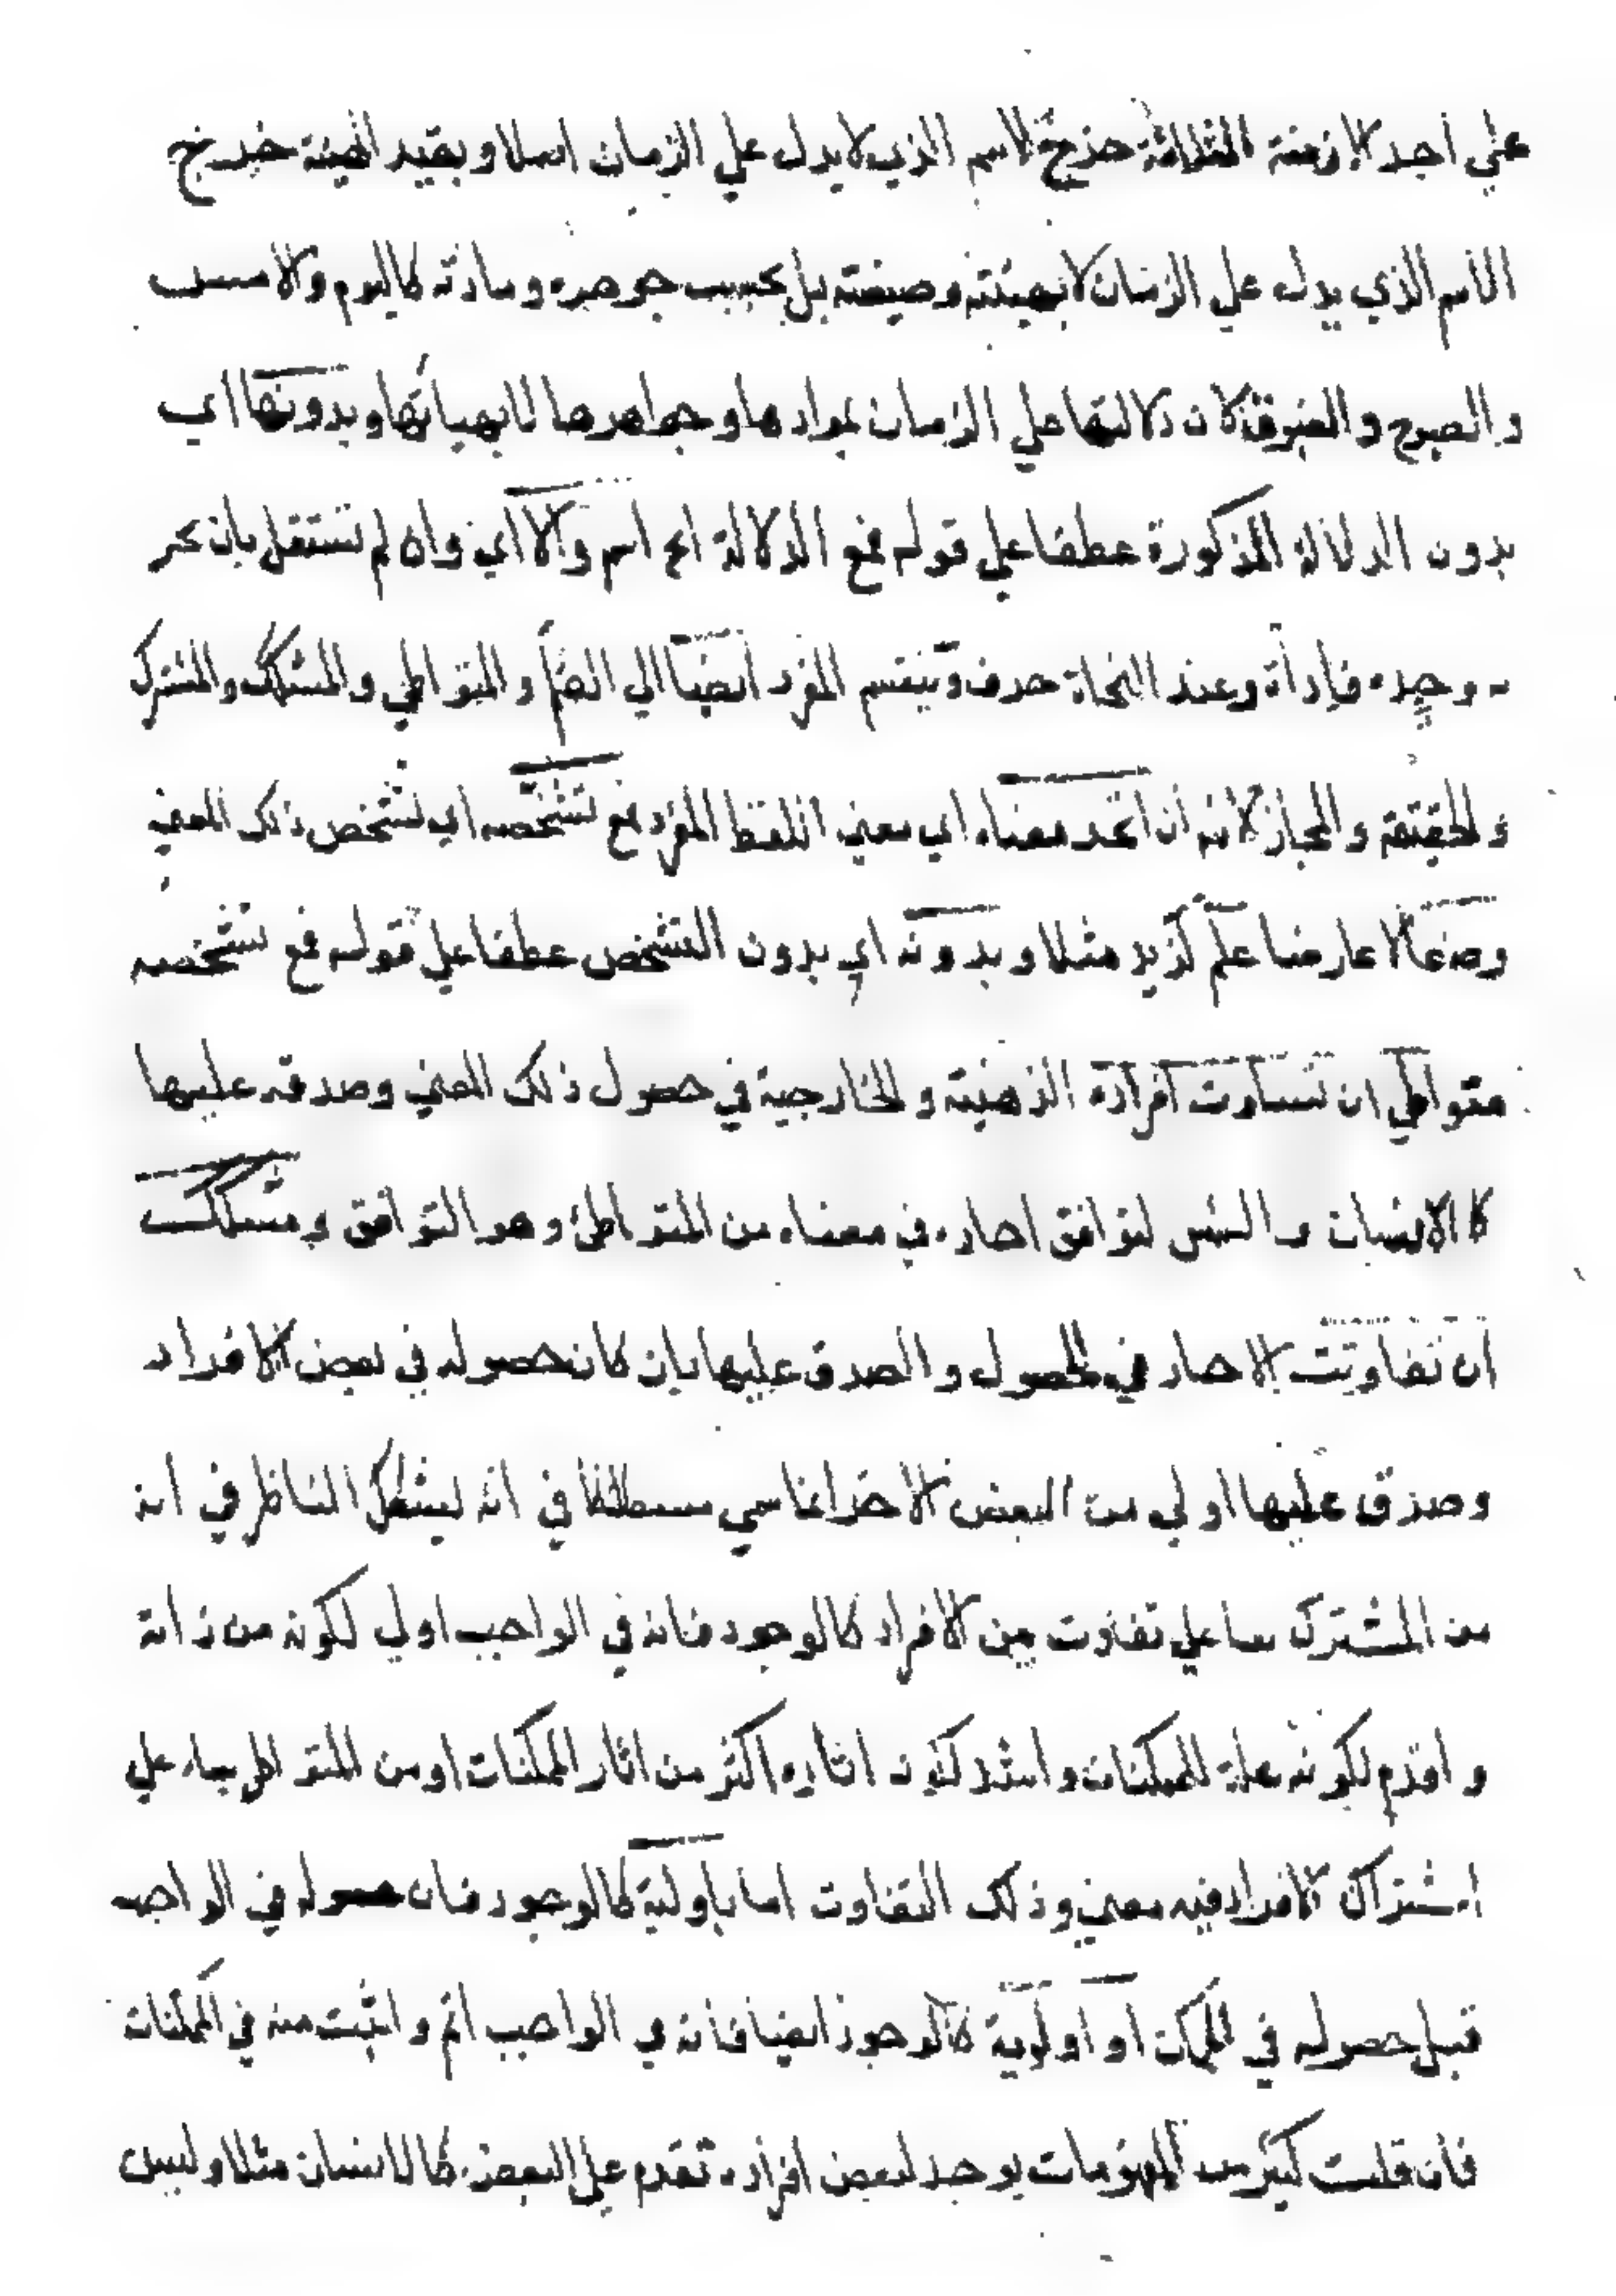 على احد الازمنة الثلاثة خرج الاسم الذي لا يدل علي الزمان اصلا وبقيد الهيئة خرج
الاسم الذي يدل علي الزمان لا بهيئته وصيغته بل بحسب جوهره ومادته كاليوم والامس
والصبوح والغبوق فان دلالتها علي الزمان بموادها وجواهرها لا بهياتها وبدونها اي
بدون الدلالة المذكورة عطفا علي قوله فمع الدلالة الخ اسم والا اي وان لم تستقل بان يخبر
به وحده فاداة وعند النحاة حرف وينقسم المفرد ايضا الي العلم والمتواطي والمشكك والمشترك
والحقيقة والمجاز لانه ان اتحد معناه اي معني اللفظ المفرد فمع تشخصه اي تشخص ذلك المعني
وضعا لا عارضا علم كزيد مثلا وبدونه اي بدون التشخص عطفا علي قوله فمع تشخصه
متواطي ان تساوت افراده الذهنية والخارجية في حصول ذلك المعني وصدقه عليها
كالانسان والشمس لتوافق احاده في معناه من المتواطئ وهو التوافق ومشكك
ان تفاوتت الاحاد في الحصول والصدق عليها بان كان حصوله في بعض الافراد
وصدق عليها اولي من البعض الاخر انما سمي مشككا في انه ليشكل الناظر في انه
من المشترك بناء علي تفاوت بين الافراد كالوجود فانه في الواجب اولي لكونه من ذاته
واقدم لكونه علة للممكنات واشد لكون اثاره اكثر من اثار الممكنات او من المتواطي بناء علي
اشتراك الافراد فيه معني وذلك التفاوت اما باولية كالوجود فان حصوله في الواجب
قبل حصوله في الممكن او اولوية كالوجود ايضا فانه في الواجب اتم واثبت منه في الممكنات
فان قلت كثير من المفهومات يوجد لبعض افراده تقدم علي البعض كالانسان مثلا وليس